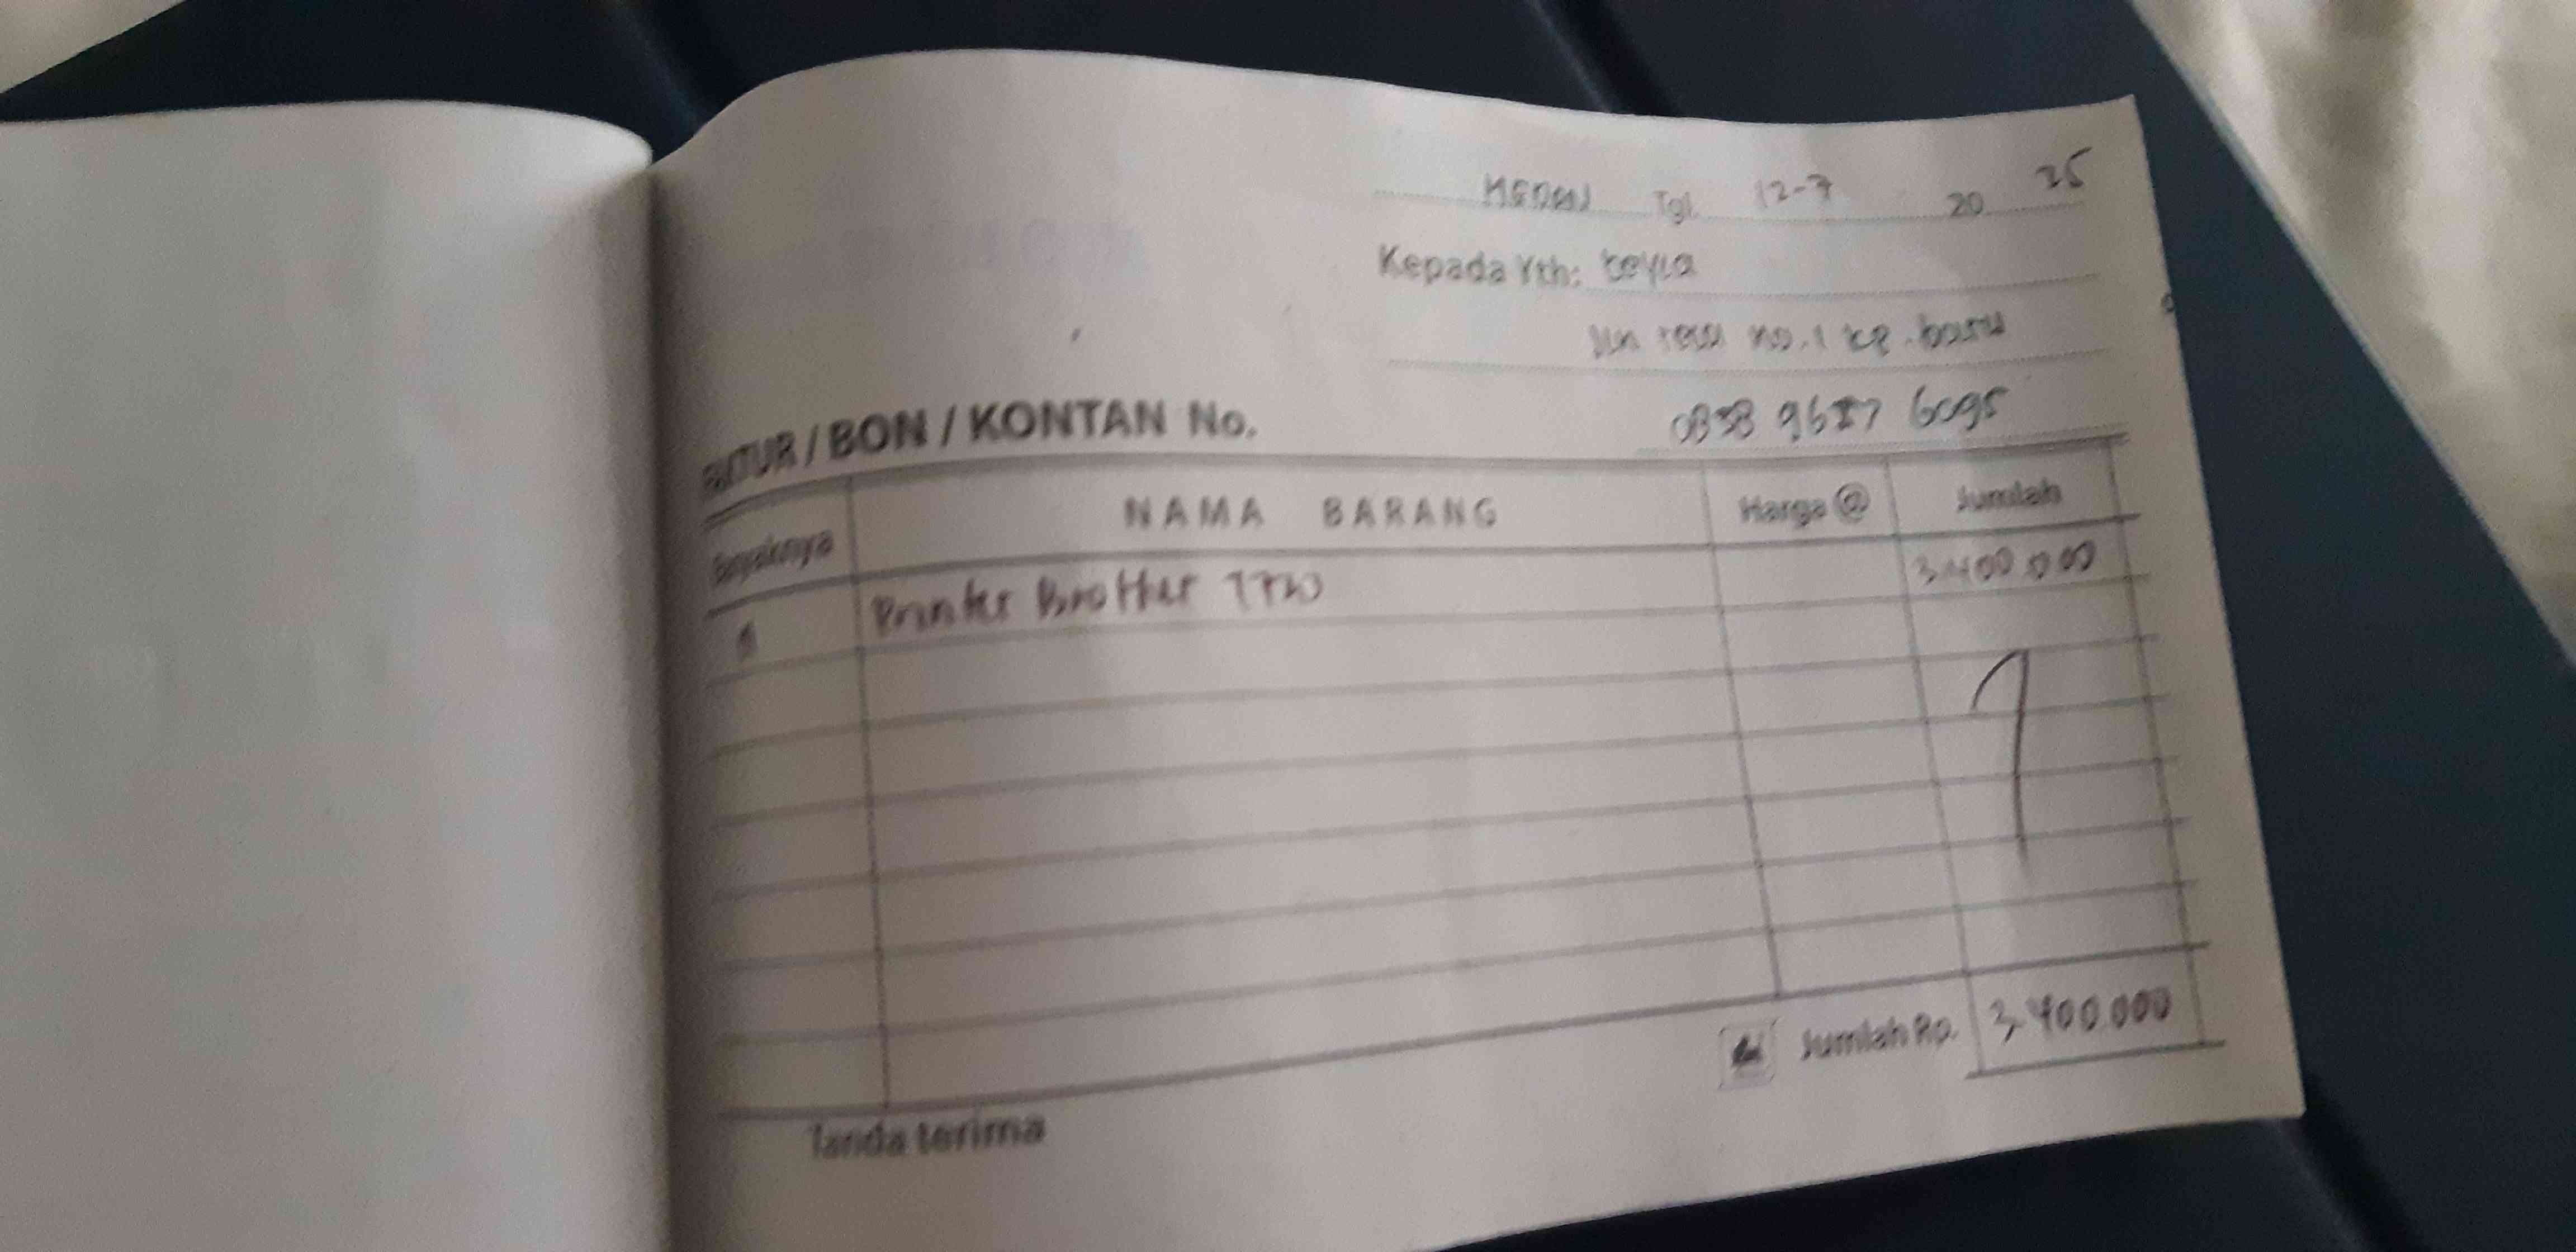 MEDAN Tgl. 12-7 20 25
Kepada Yth: keyla
no. 1 kp. baru
FAKTUR / BON / KONTAN No.
0838 9657 6095
Banyaknya NAMA BARANG Harga @ Jumlah
1 Printer Brother T720 3.400.000
Jumlah Rp. 3.400.000
Tanda terima